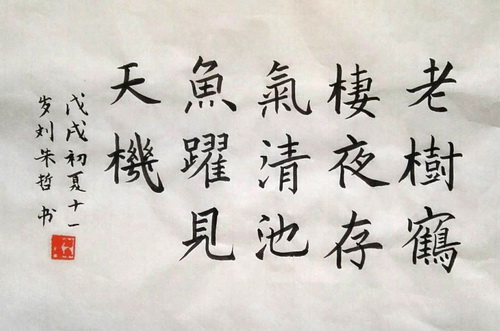 老樹鶴
棲夜存
氣清池
魚躍見
天機
戊戌初夏十一
岁刘朱哲书